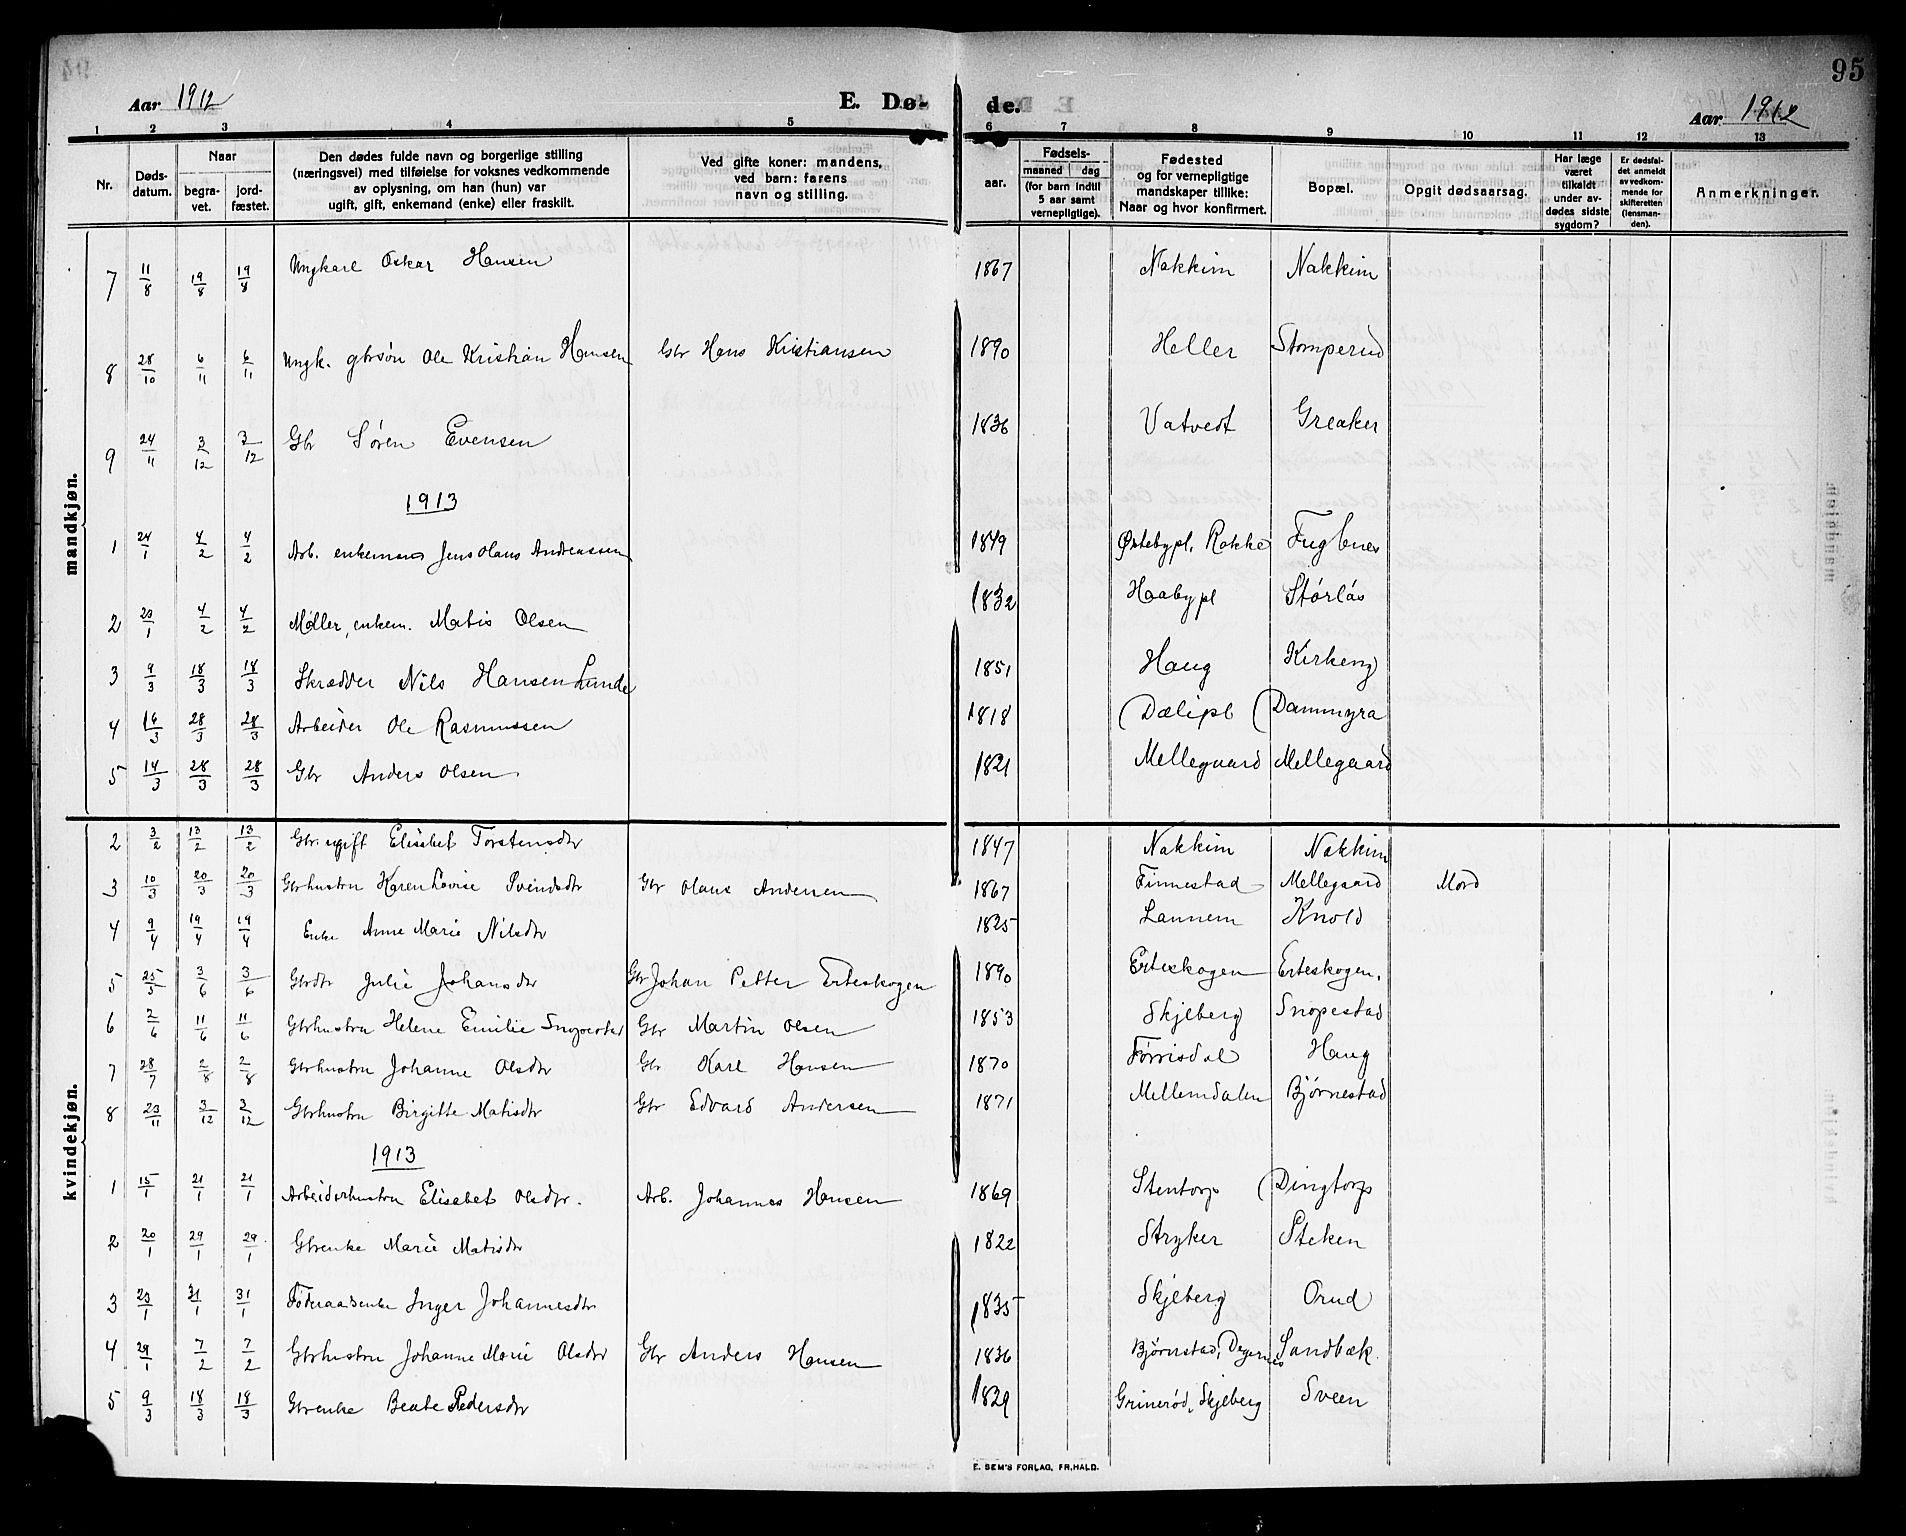 95
Aar 1912 E. Dø- de. Aar 1912
1 2 3 4 5 6 7 8 9 10 11 12 13
Nr. Døds-datum. Naar begra-vet. jord-fæstet. Den dødes fulde navn og borgerlige stilling (næringsvei) med tilføielse for voksnes vedkommende av oplysning, om han (hun) var ugift, gift, enkemand (enke) eller fraskilt. Ved gifte koner: mandens, ved barn: farens navn og stilling. aar. Fødsels- maaned dag (for barn indtil 5 aar samt vernepligtige). Fødested og for vernepligtige mandskaper tillike: Naar og hvor konfirmert. Bopæl. Opgit dødsaarsag. Har læge været tilkaldt under av-dødes sidste sygdom? Er dødsfal-det anmeldt av vedkom-mende for skifteretten (lensman-den). Anmerkninger.
mandkjøn.
7 11/8 19/8 19/8 Ungkarl Oskar Hansen 1867 Nakkim Nakkim
8 28/10 6/11 6/11 Ungk. gbrsøn Ole Kristian Hansen Gbr Hans Kristiansen 1890 Heller Stomperud
9 24/11 3/12 3/12 Gbr Søren Evensen 1836 Vatvedt Greaker
1913
1 24/1 4/2 4/2 Arb. enkeman Jens Olaus Andreassen 1849 Østebypl. Rokke Fuglenes
2 29/1 4/2 4/2 Møller, enkem. Matis Olsen 1832 Haabypl Störlös
3 9/3 18/3 18/3 Skrædder Nils Hansen Lunde 1851 Haug Kirkeng
4 19/3 28/3 28/3 Arbeider Ole Rasmussen 1818 (Dælipl (Dammyra
5 14/3 28/3 28/3 Gbr Anders Olsen 1821 Mellegaard Mellegaard
kvindekjøn.
2 3/2 13/2 13/2 Gbr. ugift Elisabet Torstensdtr 1847 Nakkim Nakkim
3 10/3 20/3 20/3 Gbrhustru Karen Lovise Svendsdtr Gbr Olaus Andersen 1867 Finnestad Mellegaard Mord
4 9/4 19/4 19/4 Enke Anne Marie Nilsdtr 1825 Lannem Knold
5 25/5 3/6 3/6 Gbrdtr Julie Johansdtr Gbr Johan Petter Erteskogen 1890 Erteskogen Erteskogen.
6 2/6 11/6 11/6 Gbrhustru Helene Emilie Snopestad Gbr Martin Olsen 1853 Skjeberg Snopestad
7 28/7 2/8 2/8 Gbrhustru Johanne Olsdtr Gbr Karl Hansen 1870 Førrisdal Haug
8 23/11 3/12 3/12 Gbrhustru Birgitte Matisdtr Gbr Edvard Andersen 1871 Mellemdalen Bjørnestad
1913
1 15/1 21/1 21/1 Arbeiderhustru Elisabet Olsdtr. Arb. Johannes Hansen 1869 Stentorp (Dingtorp
2 20/1 29/1 29/1 Gbrenke Marie Matisdtr 1822 Stryker Steken
3 23/1 31/1 31/1 Føderaadsenke Inger Johannesdtr 1835 Skjeberg Orud
4 29/1 7/2 7/2 Gbrhustru Johanne Marie Olsdtr Gbr Anders Hansen 1836 Bjørnstad, Degernes Sandbæk.
5 9/3 18/3 18/3 Gbrenke Beate Pedersdtr 1829 Grinerød, Skjeberg Sveen
E. SEM'S FORLAG, FR.HALD.